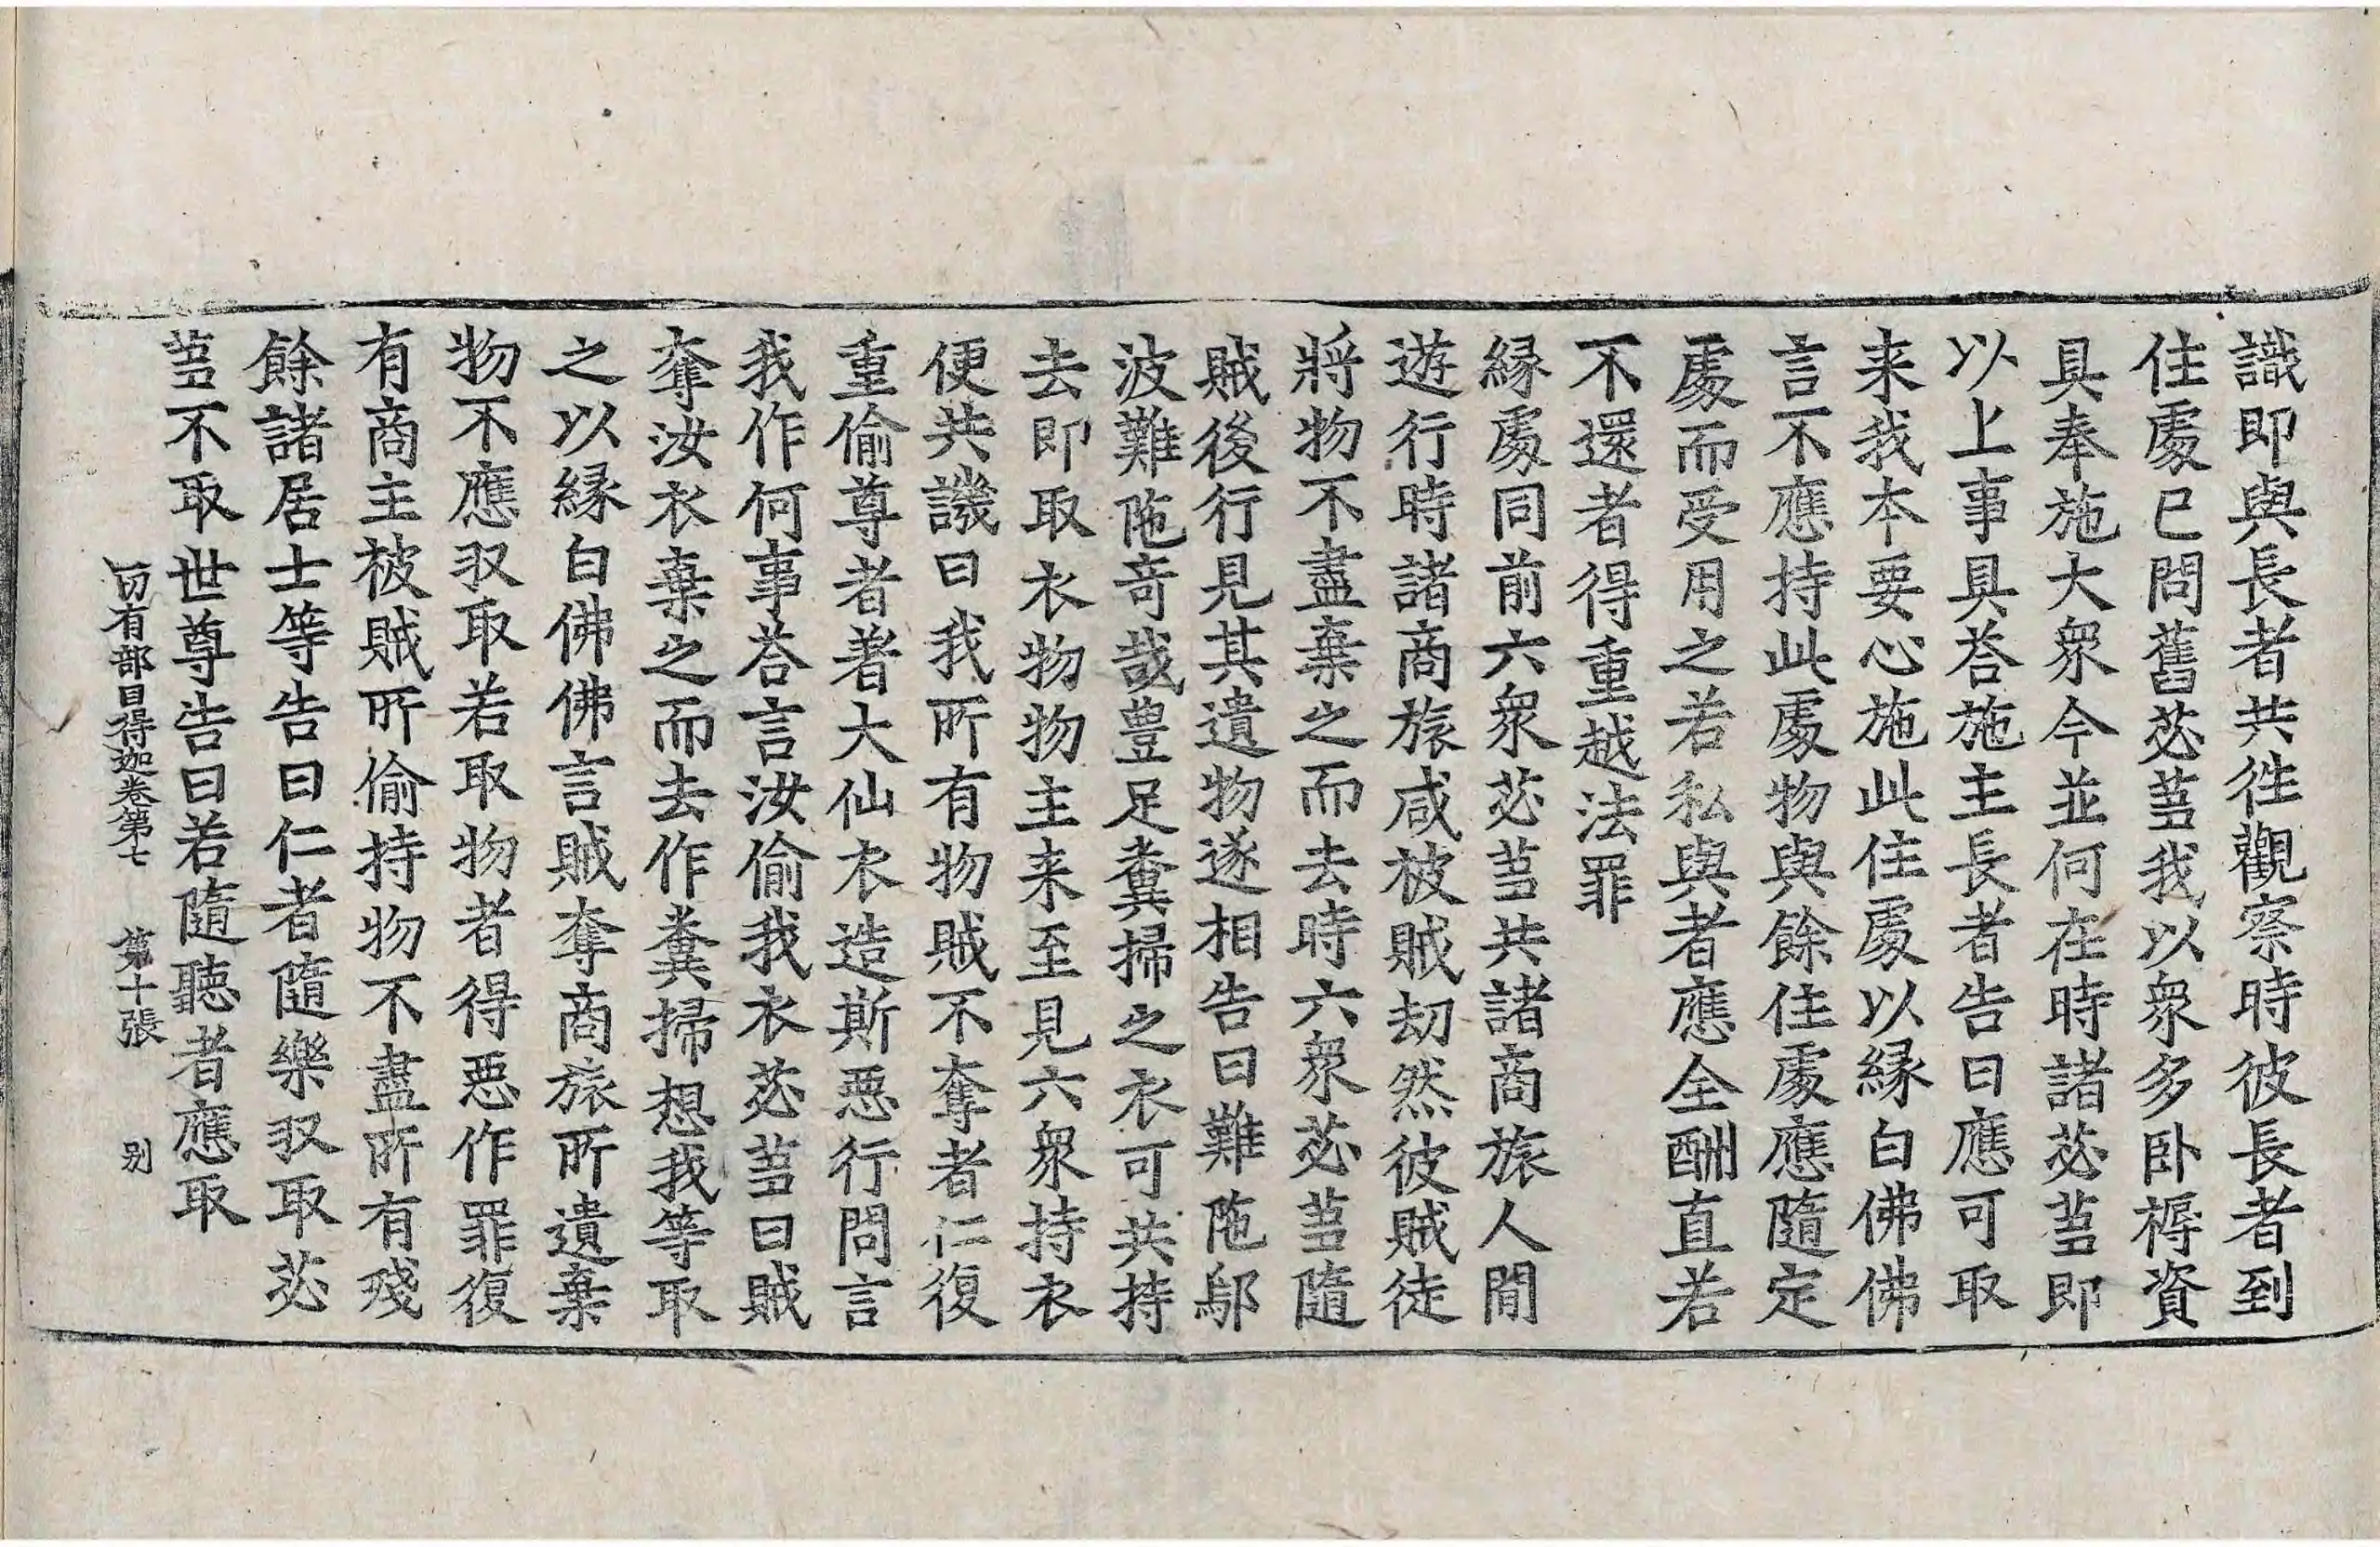 識即與長者共徃觀察時彼長者到
住處已問舊苾芻我以衆多卧褥資
具奉施大衆今並何在時諸苾芻即
以上事具荅施主長者告曰應可取
来我本要心施此住處以縁白佛佛
言不應持此處物與餘住處應隨定
處而受用之若私與者應全酬直若
不還者得重越法罪
縁處同前六衆苾芻共諸商旅人間
遊行時諸商旅咸被賊劫然彼賊徒
將物不盡棄之而去時六衆苾芻隨
賊後行見其遺物遂相告曰難陁鄔
波難陁奇哉豊足糞掃之衣可共持
去即取衣物物主来至見六衆持衣
便共譏曰我所有物賊不奪者仁復
重偷尊者著大仙衣造斯惡行問言
我作何事荅言汝偷我衣苾芻曰賊
奪汝衣棄之而去作糞掃想我等取
之以縁白佛佛言賊奪商旅所遺棄
物不應収取若取物者得惡作罪復
有商主被賊所偷持物不盡所有殘
餘諸居士等告曰仁者隨樂収取苾
芻不取世尊告曰若隨聽者應取
一切有部目得迦卷第七 第十張 别